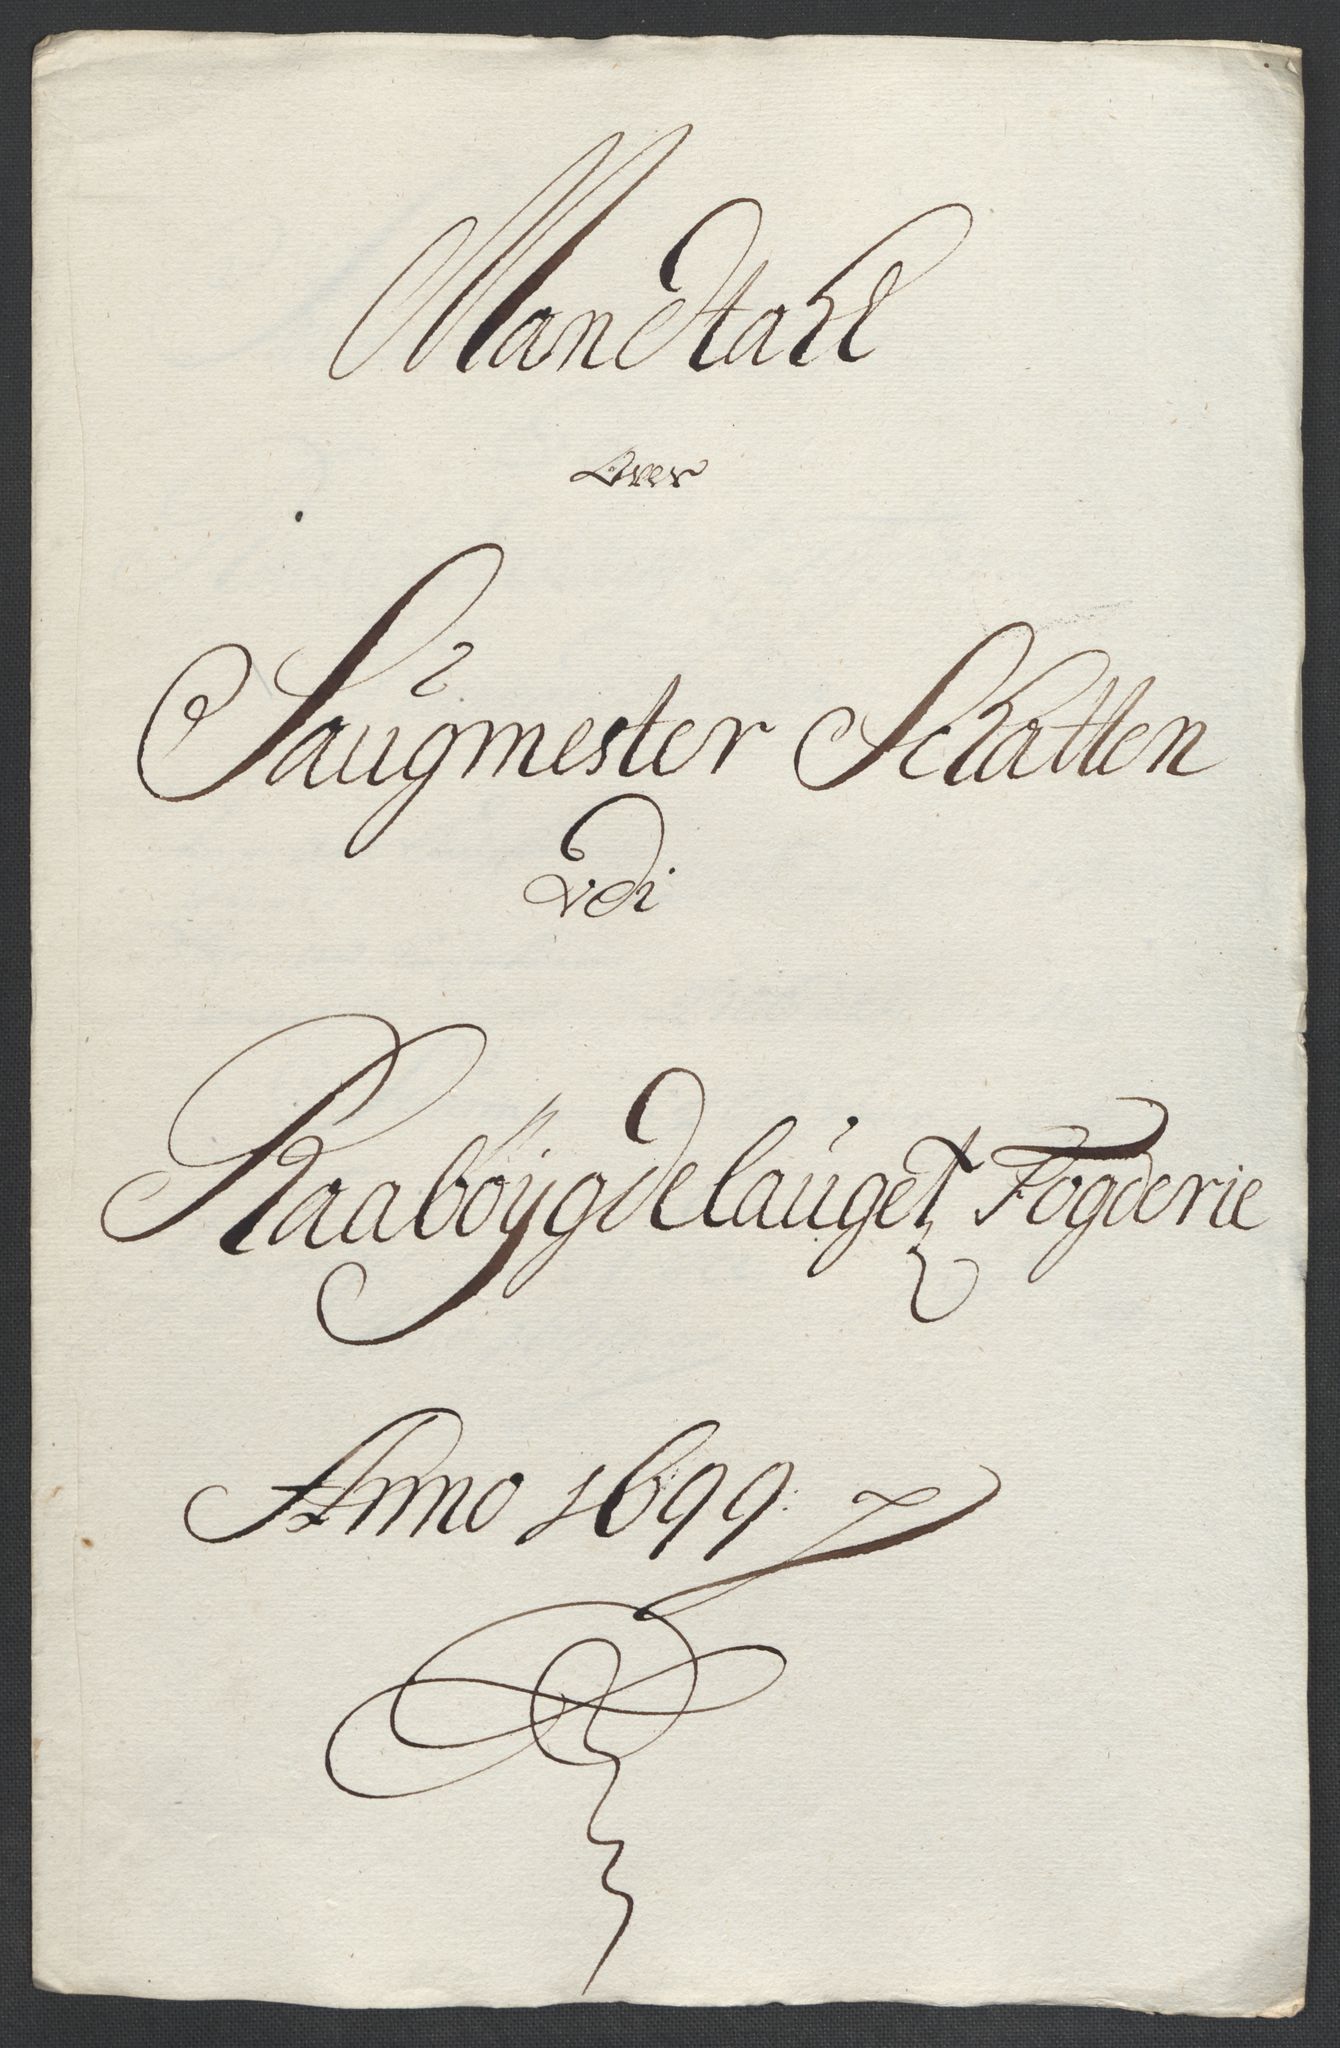 Mandtahl
Over
Saugmester Schatten
Udi
Raaboÿgdelauget Fogderie
Anno 1699